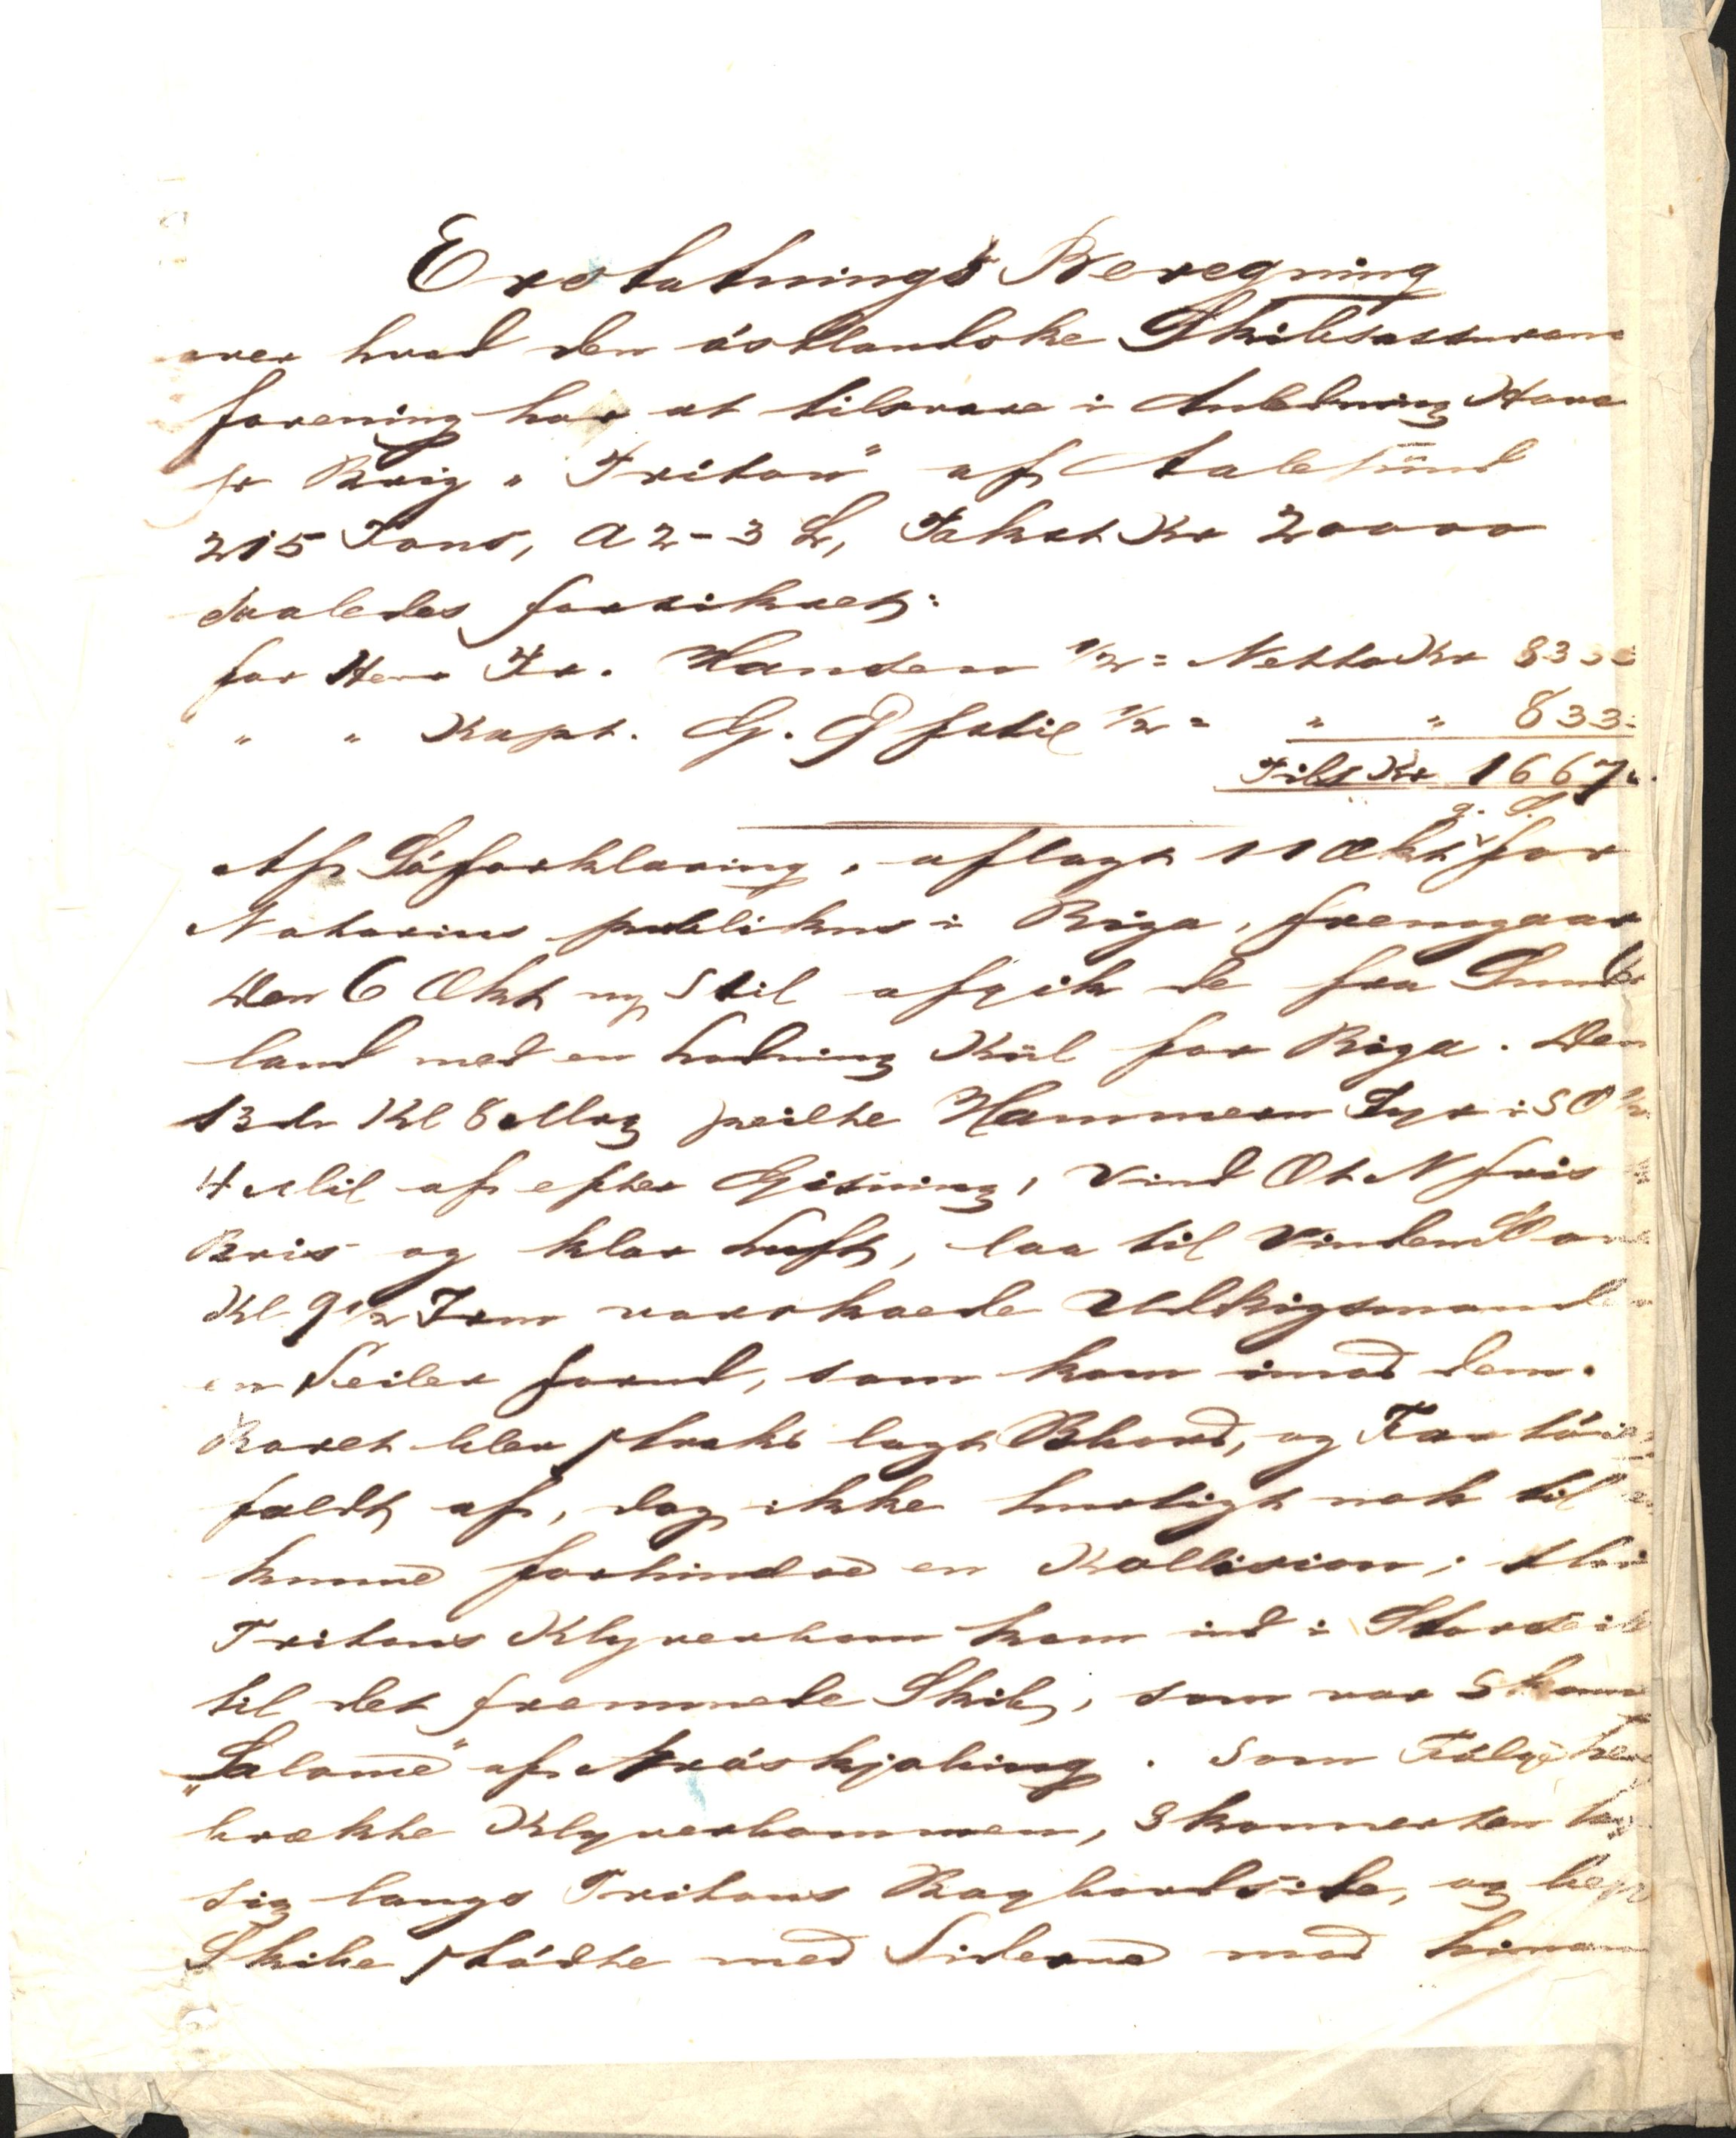 Erstatnings Beregning
over hvad den östlandske Skibsassurance
forening har at tilsvare i Anledning Hava
pr Brig „Triton" af Aalesund
215 Tons, A2-3 L, Takst Kr 20000
saaledes forsikret:
for Herr Fr. Hansen 1/2 = Netto Kr 833
" " Kapt. G. 1/2 = " " 833
Tils Kr 1667
Af Söforklaring, aflagt 11 Okt g. S. for
Notarius publikus i Riga, fremgaar
Den 6 Okt ny Stil afgik de fra Sunder
land med en Ladning Kul for Riga. Den
13de Kl 8 Mrg peilte Hammern Fyr i SO
4 Mil af efter Gisning, Vind OtN fris
Bris og klar Luft, laa til Vinden Over
Kl 9 1/2 Frm varskoede Udkigsmanden
en Seiler forud, som kom imod dem.
Roret blev straks lagt Bbord, og Fartöiet
faldt af, dog ikke hurtigt nok til
kunne forhindre en Kollision; thi
Tritons Klyverbom kom ind i Storseil
til det fremmede Skib, som var Skonn
„Salome" af Æröskjöbing. Som Fölge her
brækte Klyverbommen, Skonnerten
sig langs Tritons Bagbordside, og begge
Skibe stödte med Siderne mod hinan